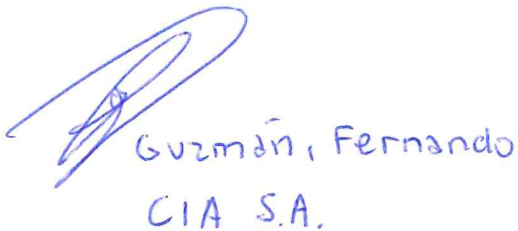 Guzmán, Fernando
CIA S.A.